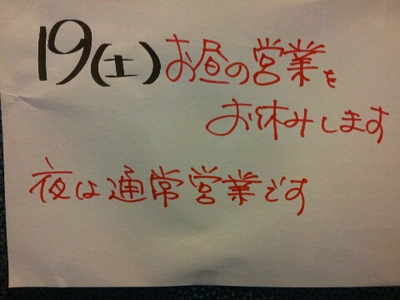 19(土)お昼の営業を
お休みします
夜は通常営業です